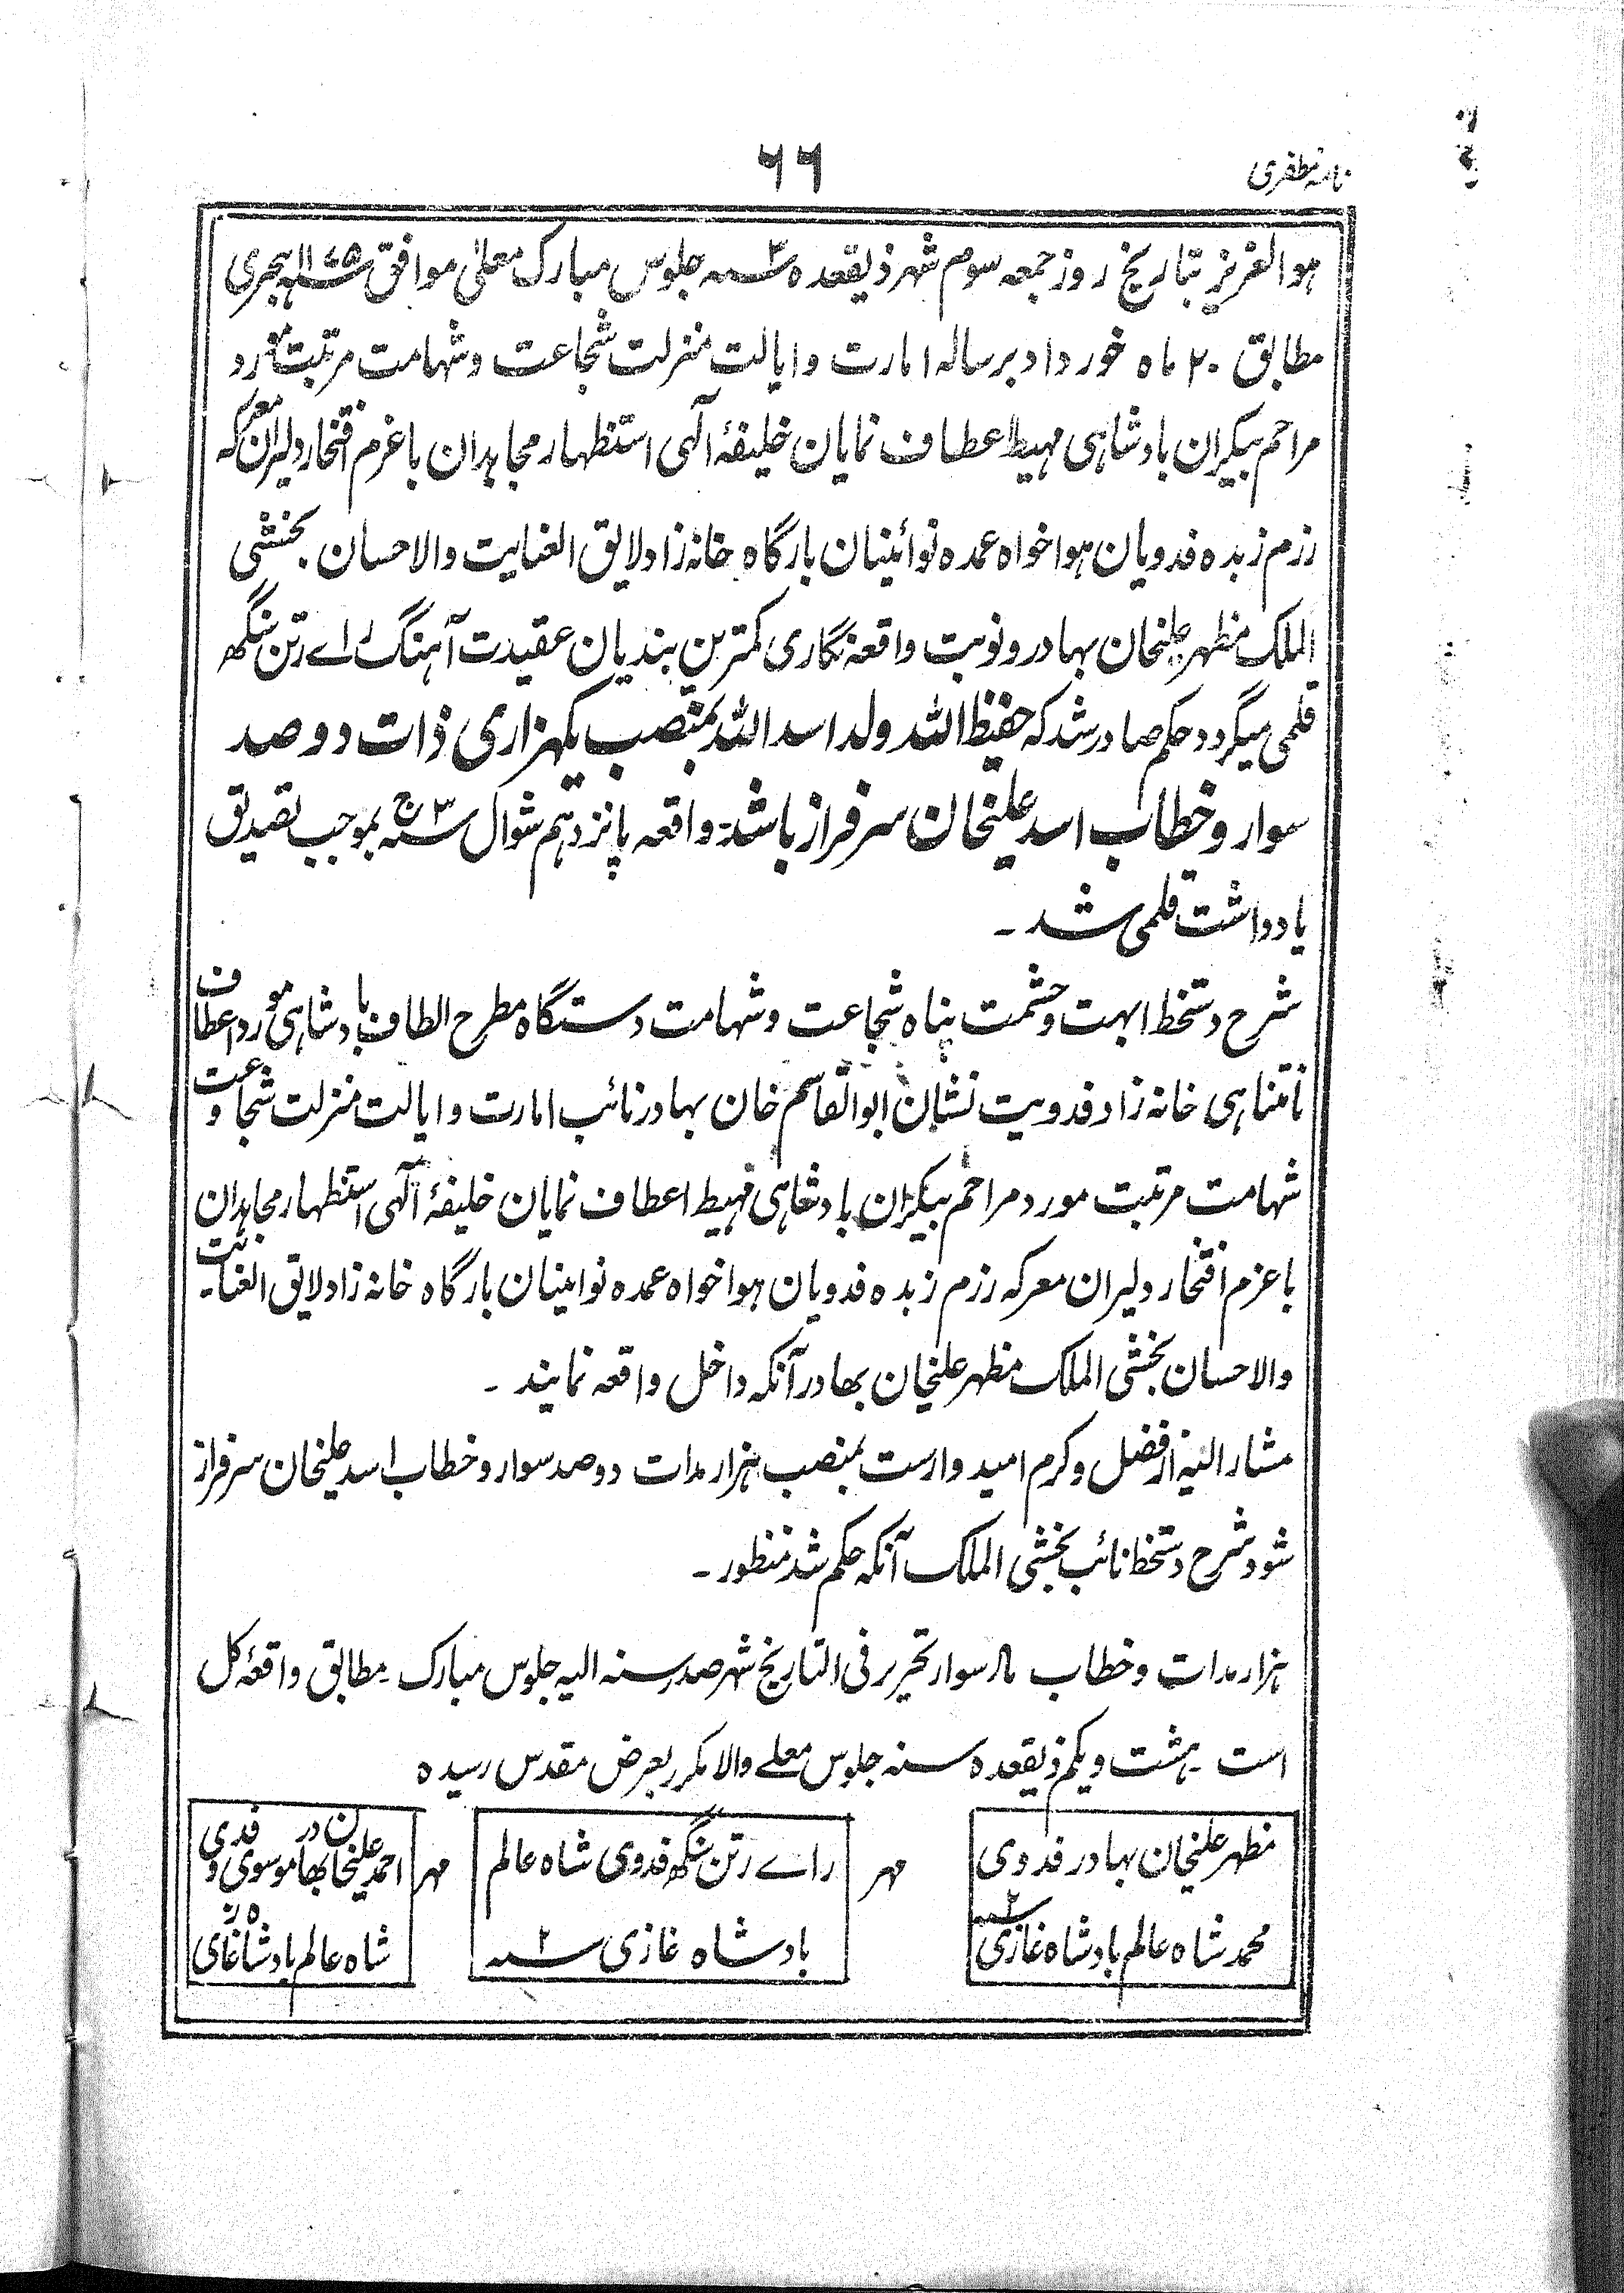 نامہ مظفری
۶۶
ہوالعزیز بتاریخ روز جمعہ سوم شہر ذیقعدہ سنہ ۳ جلوس مبارک معلیٰ موافق ۱۱۷۵ ہجری
مطابق ۲۰ ماہ خورداد برسالہ امارت وایالت منزلت شجاعت وشہامت مرتبت مورد
مراحم بیکران بادشاہی مہبط اعطاف نمایان خلیفۂ الٰہی استظہار مجاہدان باعزم افتخار دلیران معرکہ
رزم زبدہ فدویان ہواخواہ عمدہ نوائینان بارگاہ خانہ زاد لایق العنایت والاحسان بخشی
الملک مظہر علیخان بہادر ونوبت واقعہ نگاری کمترین بندیان عقیدت آہنگ راے رتن سنگھ
قلمی میگردد حکم صادر شد کہ حفیظ اللہ ولد اسد اللہ بمنصب یکہزاری ذات دوصد
سوار وخطاب اسد علیخان سرفراز باشد واقعہ پانزدہم شوال سنہ ۳ ج بموجب تصدیق
یادداشت قلمی شد ۔
شرح دستخط ابہت وحشمت پناہ شجاعت وشہامت دستگاہ مطرح الطاف بادشاہی مورد اعطاف
نامتناہی خانہ زاد فدویت نشان ابوالقاسم خان بہادر نائب امارت وایالت منزلت شجاعت و
شہامت مرتبت مورد مراحم بیکران بادشاہی مہبط اعطاف نمایان خلیفۂ الٰہی استظہار مجاہدان
باعزم افتخار دلیران معرکہ رزم زبدہ فدویان ہواخواہ عمدہ نوابینان بارگاہ خانہ زاد لایق العنایت
والاحسان بخشی الملک مظہر علیخان بھادر آنکہ داخل واقعہ نمایند ۔
مشار الیہ از فضل وکرم امیدوارست بمنصب ہزار مدات دوصد سوار وخطاب اسد علیخان سرفراز
شود شرح دستخط نائب بخشی الملک آنکہ حکم شد منظور ۔
ہزار مدات وخطاب سوار تحریر فی التاریخ شہر صدر سنہ الیہ جلوس مبارک ۔ مطابق واقعۂ کل
است ۔ بہشت ویکم ذیقعدہ سنہ جلوس معلے والا مکرر بعرض مقدس رسیدہ
مظہر علیخان بہادر فدوی
محمد شاہ عالم بادشاہ غازی سنہ ۲
مہر
راے رتن سنگھ فدوی شاہ عالم
بادشاہ غازی سنہ ۲
مہر
احمد علیخان بھادر موسوی فدوی
شاہ عالم بادشاہ غازی